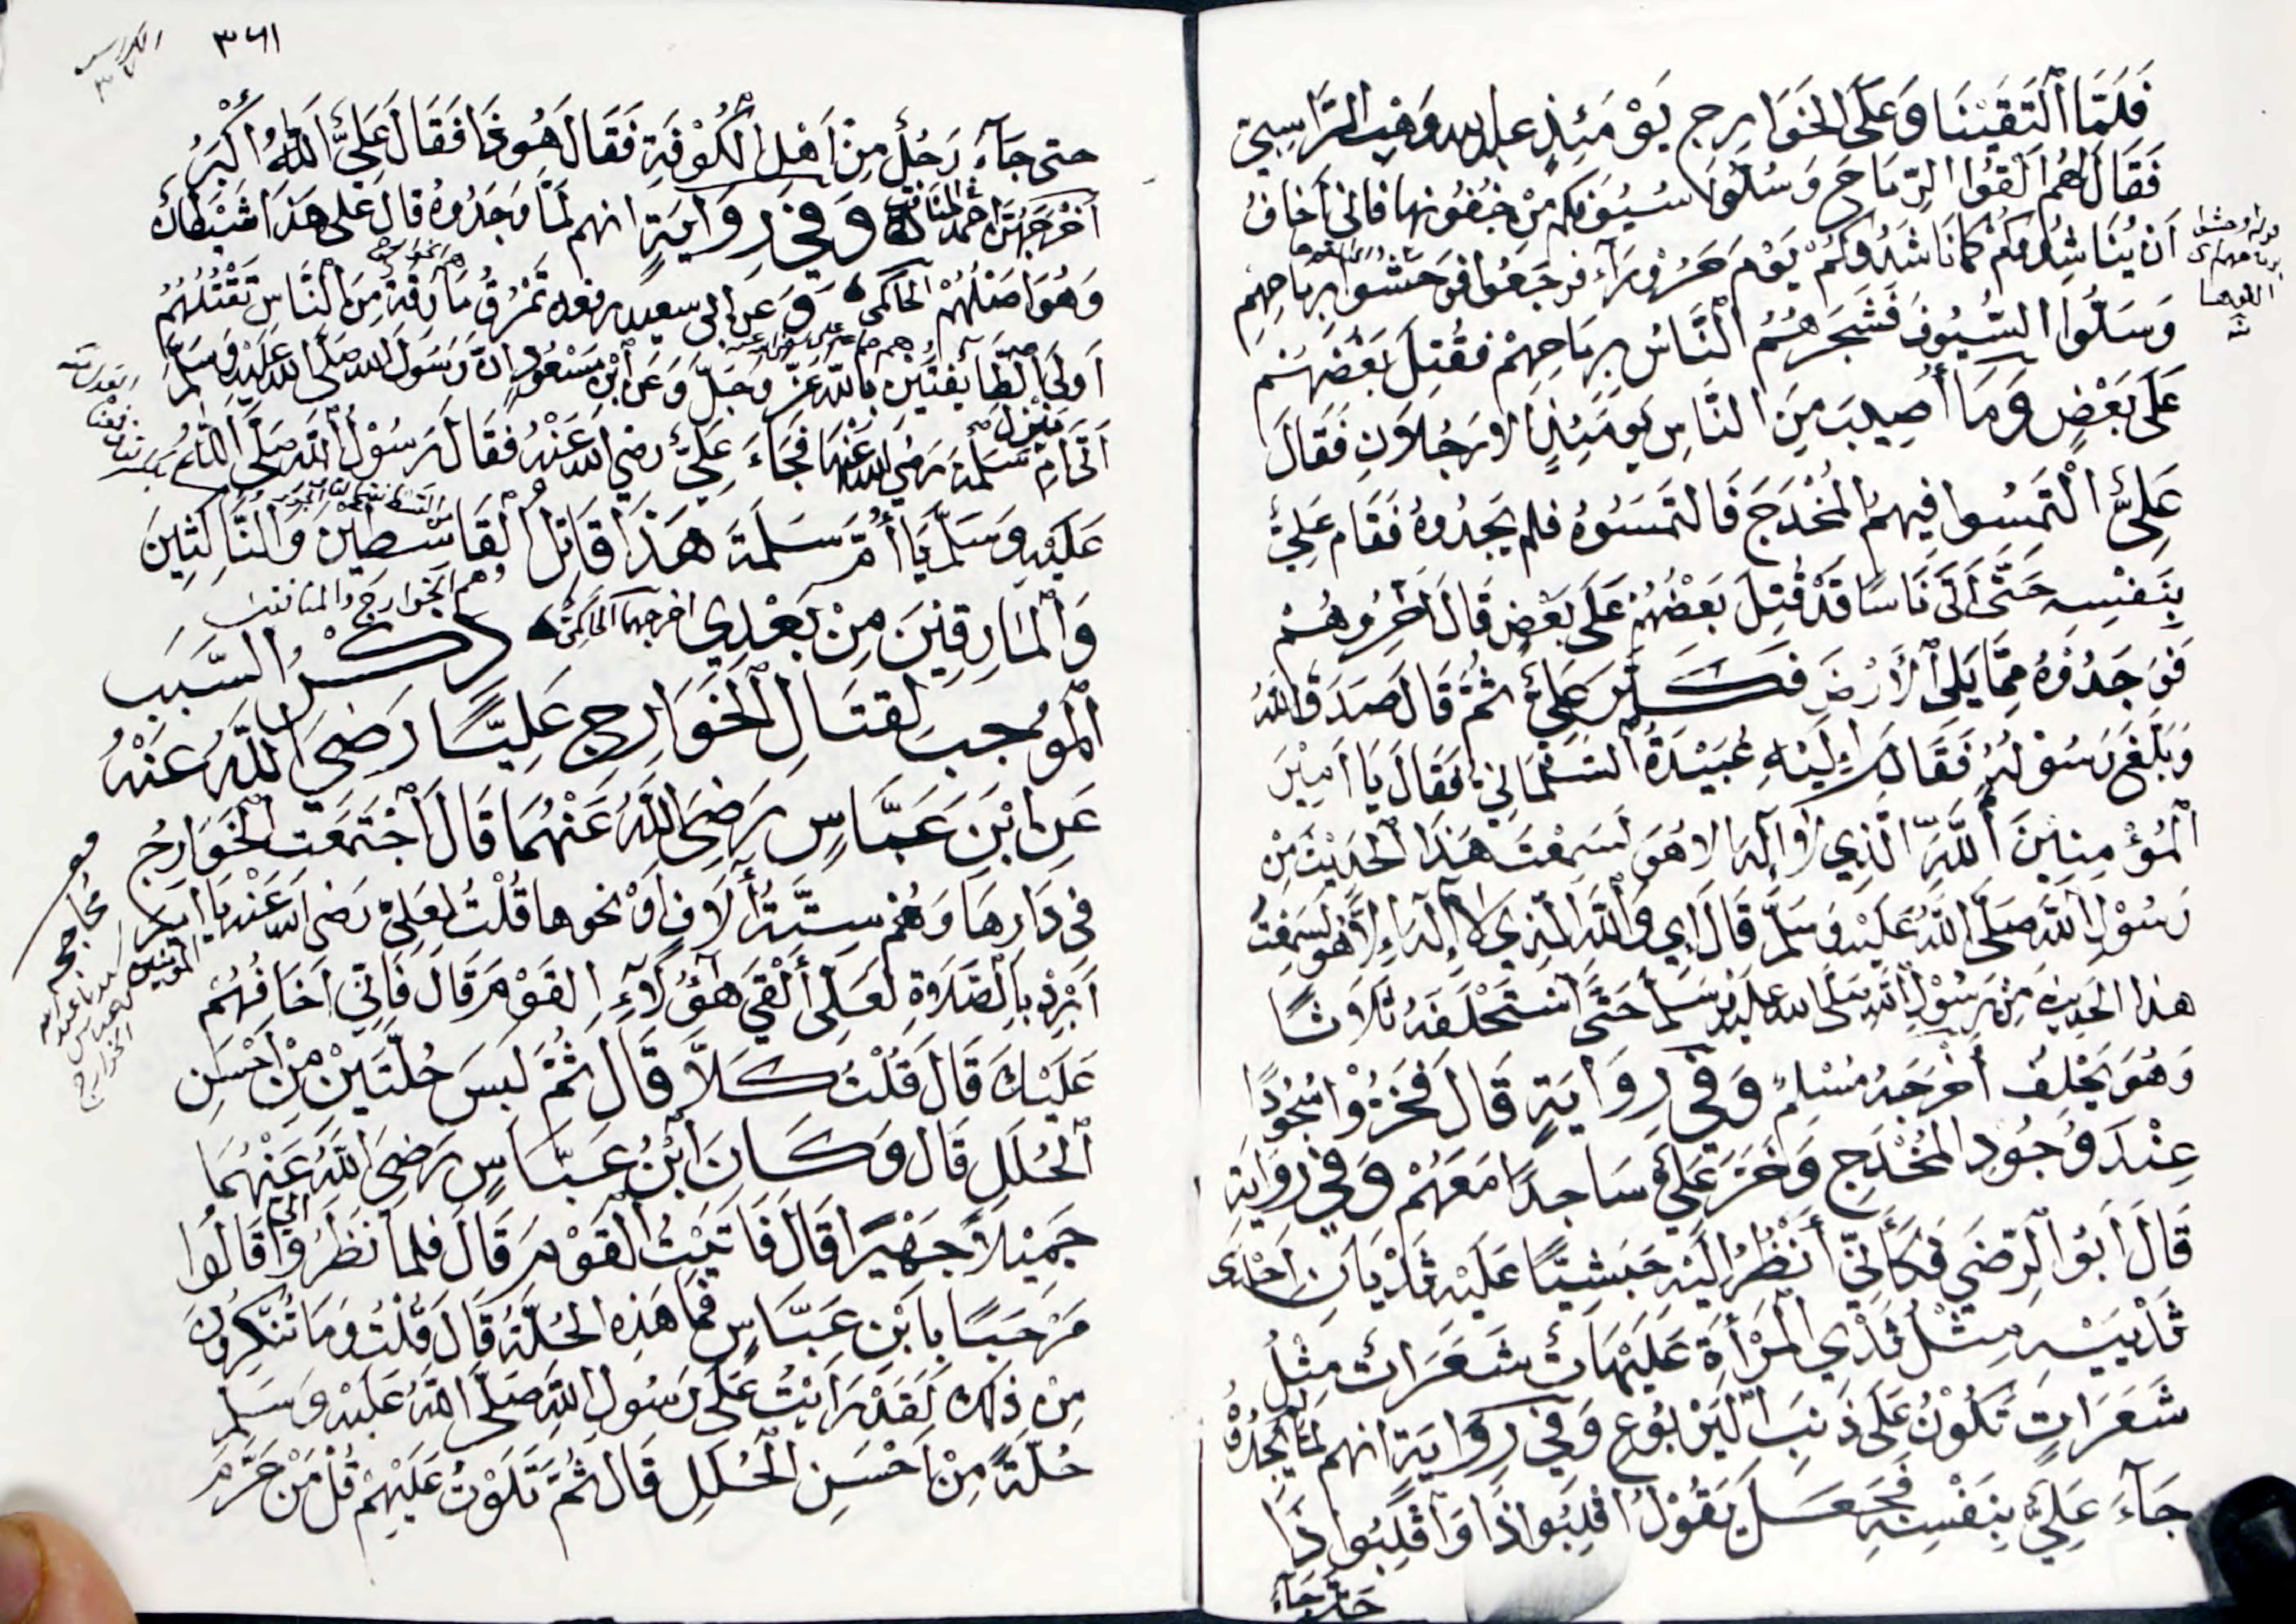 فَلَمَّا الْتَقَيْنَا وَعَلَى الخَوَارِجِ يَوْمَئِذٍ عبدالله وَهْبِ الرَّاسِبِيّ
فَقَالَ لَهُم الْقُوا الرِّمَاحَ وَسُلُّوا سُيُوفَكُم مِنْ جُفُونِهَا فاني أخافُ
اَنْ يُنَاشِدُوكُم كَمَا نَاشَدُوكُمْ يَوْمَ حَرُوْرَآءَ فرجَعُوا فوَحَشُوا بِرِمَاحِهِم
وَسَلُّوا السُّيُوفَ فَشَجَرَهُمُ النَّاسُ بِرِمَاحِهِمْ فَقُتِلَ بَعْضُهُم
عَلَى بَعْضٍ وَمَا أُصِيبَ مِنَ النَّاسِ يَومَئِذٍ الا رَجُلَانِ فَقَالَ
عَلِيٌّ الْتَمِسُوا فِيهِمُ المُخْدَجَ فَالتَمَسُوهُ فلم يَجِدُوهُ فَقَامَ عَلِيٌّ
بِنَفْسِهِ حَتَّى أَتَى نَاسًا قَدْ قُتِلَ بَعْضُهُمْ عَلَى بَعْضٍ قَالَ أَخِّرُوهُمْ
فَوَجَدُوْهُ مِمَّا يَلِي الْأَرْضَ فَكَبَّرَ عَلِيٌّ ثُمَّ قَالَ صَدَقَ اللهُ
وَبَلَّغَ رَسُوْلُهُ فَقَامَ إِلَيْهِ عُبَيْدَةُ السَّلْمَانِيُّ فَقَالَ يَا اَمِيْرَ
الْمُؤْمِنِيْنَ أَللَّهِ الَّذِي لَا اِلَهَ الا هُوَ لَسَمِعْتَ هَذَا الْحَدِيْثَ مِنْ
رَسُوْلِ اللهِ صَلَّى اللهُ عَلَيْهِ وَسَلَّمَ قَالَ اِي وَاللهِ الَّذِي لَا إِلَهَ إِلَّا هُوَ لَسَمِعْتُ
هذا الحديث مِنْ رَسُوْلِ اللهِ صَلَى الله عليه وسَلَّمَ حَتَّى اسْتَحْلَفَهُ ثَلَاثًا
وَهُوَ يَحْلِفُ أَخْرَجَهُ مُسْلِمٌ وَفِي رِوَايَةٍ قَالَ فَخَرُّوْا سُجُودًا
عِنْدَ وُجُوْدِ المُخْدَجِ وَخَرَّ عَلِيٌّ سَاجِدًا مَعَهُمْ وَفِي رِوَايَة
قَالَ اَبُو الرِّضَى فَكَأَنِّي أَنْظُرُ اِلَيْهِ حَبَشِيًّا عَلَيْهِ ثَدْيَانِ اِحْدَى
ثَدْيَيْهِ مِثْلُ ثَدْيِ الْمَرْأَةِ عَلَيْهَا شَعَرَاتٌ مِثْلُ
شَعَرَاتٍ تَكُوْنُ عَلَى ذَنَبِ الْيَرْبُوْعِ وَفِي رِوَايَةٍ انهم لَمَّا لم يَجِدُوْهُ
جَآءَ عَلِيٌّ بِنَفْسِهِ فَجَعَلَ يَقُوْلُ اقْلِبُوا ذَا وَاقْلِبُوا ذَا
حَتَّى جَآءَ
قوله وحشوا
برماحهم اي
٣٦١
حتى جَآءَ رَجُلٌ مِنْ اَهْلِ الْكُوْفَةِ فَقَالَ هُوَ هَذَا فَقَالَ عَلِيٌّ اللهُ أَكْبَرُ
أَخْرَجَهُ احْمَد في المناقب وَفِي رِوَايَةٍ انهم لَمَّا وَجَدُوهُ قَالَ عَلِي هَذَا شَيْطَانٌ
وَهُوَ اَضَلَّهُمْ الحاكمي وَعَن ابى سعيد رفعه تَمْرُقُ مَارِقَةٌ مِنَ النَّاسِ تَقْتُلُهُمْ
هم الخوارج
اَولَى الطَّائِفَتَيْنِ بِاللهِ عَزَّ وَجَلَّ وَعَن ابْنِ مَسْعُودٍ اِنَّ رَسُوْلَ الله صَلَّى الله عَلَيْهِ وَسَلَّمَ
اَتَى منزل اُم سَلَمَة رَضِيَ اللهُ عَنْهَا فَجَاءَ عَلِيٌّ رضي الله عَنْهُ فَقَالَ رَسُوْلُ اللهِ صَلَّى اللهُ
عَلَيْهِ وَسَلَّمَ يَا أُمَّ سَلَمَةَ هَذَا قَاتِلُ الْقَاسِطِيْنَ وَالنَّاكِثِينَ
وهم الخوارج والمنافقين
وَالْمَارِقِيْنَ مِنْ بَعْدِي اخرجهما الحَاكِمِيُّ ذِكْرُ السَّبَبِ
الْمُوْجِبِ لِقِتَالِ الْخَوَارِجِ عَلِيًّا رَضِيَ اللهُ عَنْهُ
عَنِ ابْنِ عَبَّاسٍ رَضِيَ اللهُ عَنْهُمَا قَالَ اَجْتَمَعَتِ الْخَوَارِجُ
فِي دَارِهَا وَهُمْ سِتَّةُ أَلَافٍ اَوْ نحوها قُلْتُ لِعَلِيّ رَضِيَ الله عَنْهُ يَا اَمِيْرَ
المؤمنين
اَبْرِدْ بِالصَّلَاةِ لَعَلِّي أَلْقَى هَؤُلَآءِ القَوْمَ قَالَ فَاِنِّي اَخَافُهُمْ
عَلَيْكَ قَالَ قُلْتُ كَلَّا قَالَ ثُمَّ لَبِسَ حُلَّتَيْنِ مِنْ اَحْسَنِ
الْحُلَلِ قَالَ وَكَانَ ابْنُ عَبَّاسٍ رَضِيَ اللهُ عَنْهُمَا
جَمِيْلًا جَهِيْرًا قَالَ فَاَتَيْتُ الْقَوْمَ قَالَ فلما نَظَرُوْا الي قَالُوا
مَرْحَبًا بِابْنِ عَبَّاسٍ فَمَا هَذِهِ الحُلَّةُ قَالَ قُلْتُ وَمَا تُنْكِرُوْنَ
مِنْ ذلك لَقَدْ رَاَيْتُ عَلَى رَسُولِ اللهِ صَلَّى اللهُ عَلَيْهِ وَسَلَّمَ
حُلَّةً مِنْ اَحْسَنِ الْحُلَلِ قَالَ ثُمَّ تَلَوْتُ عَلَيْهِمْ قُلْ مَنْ حَرَّمَ